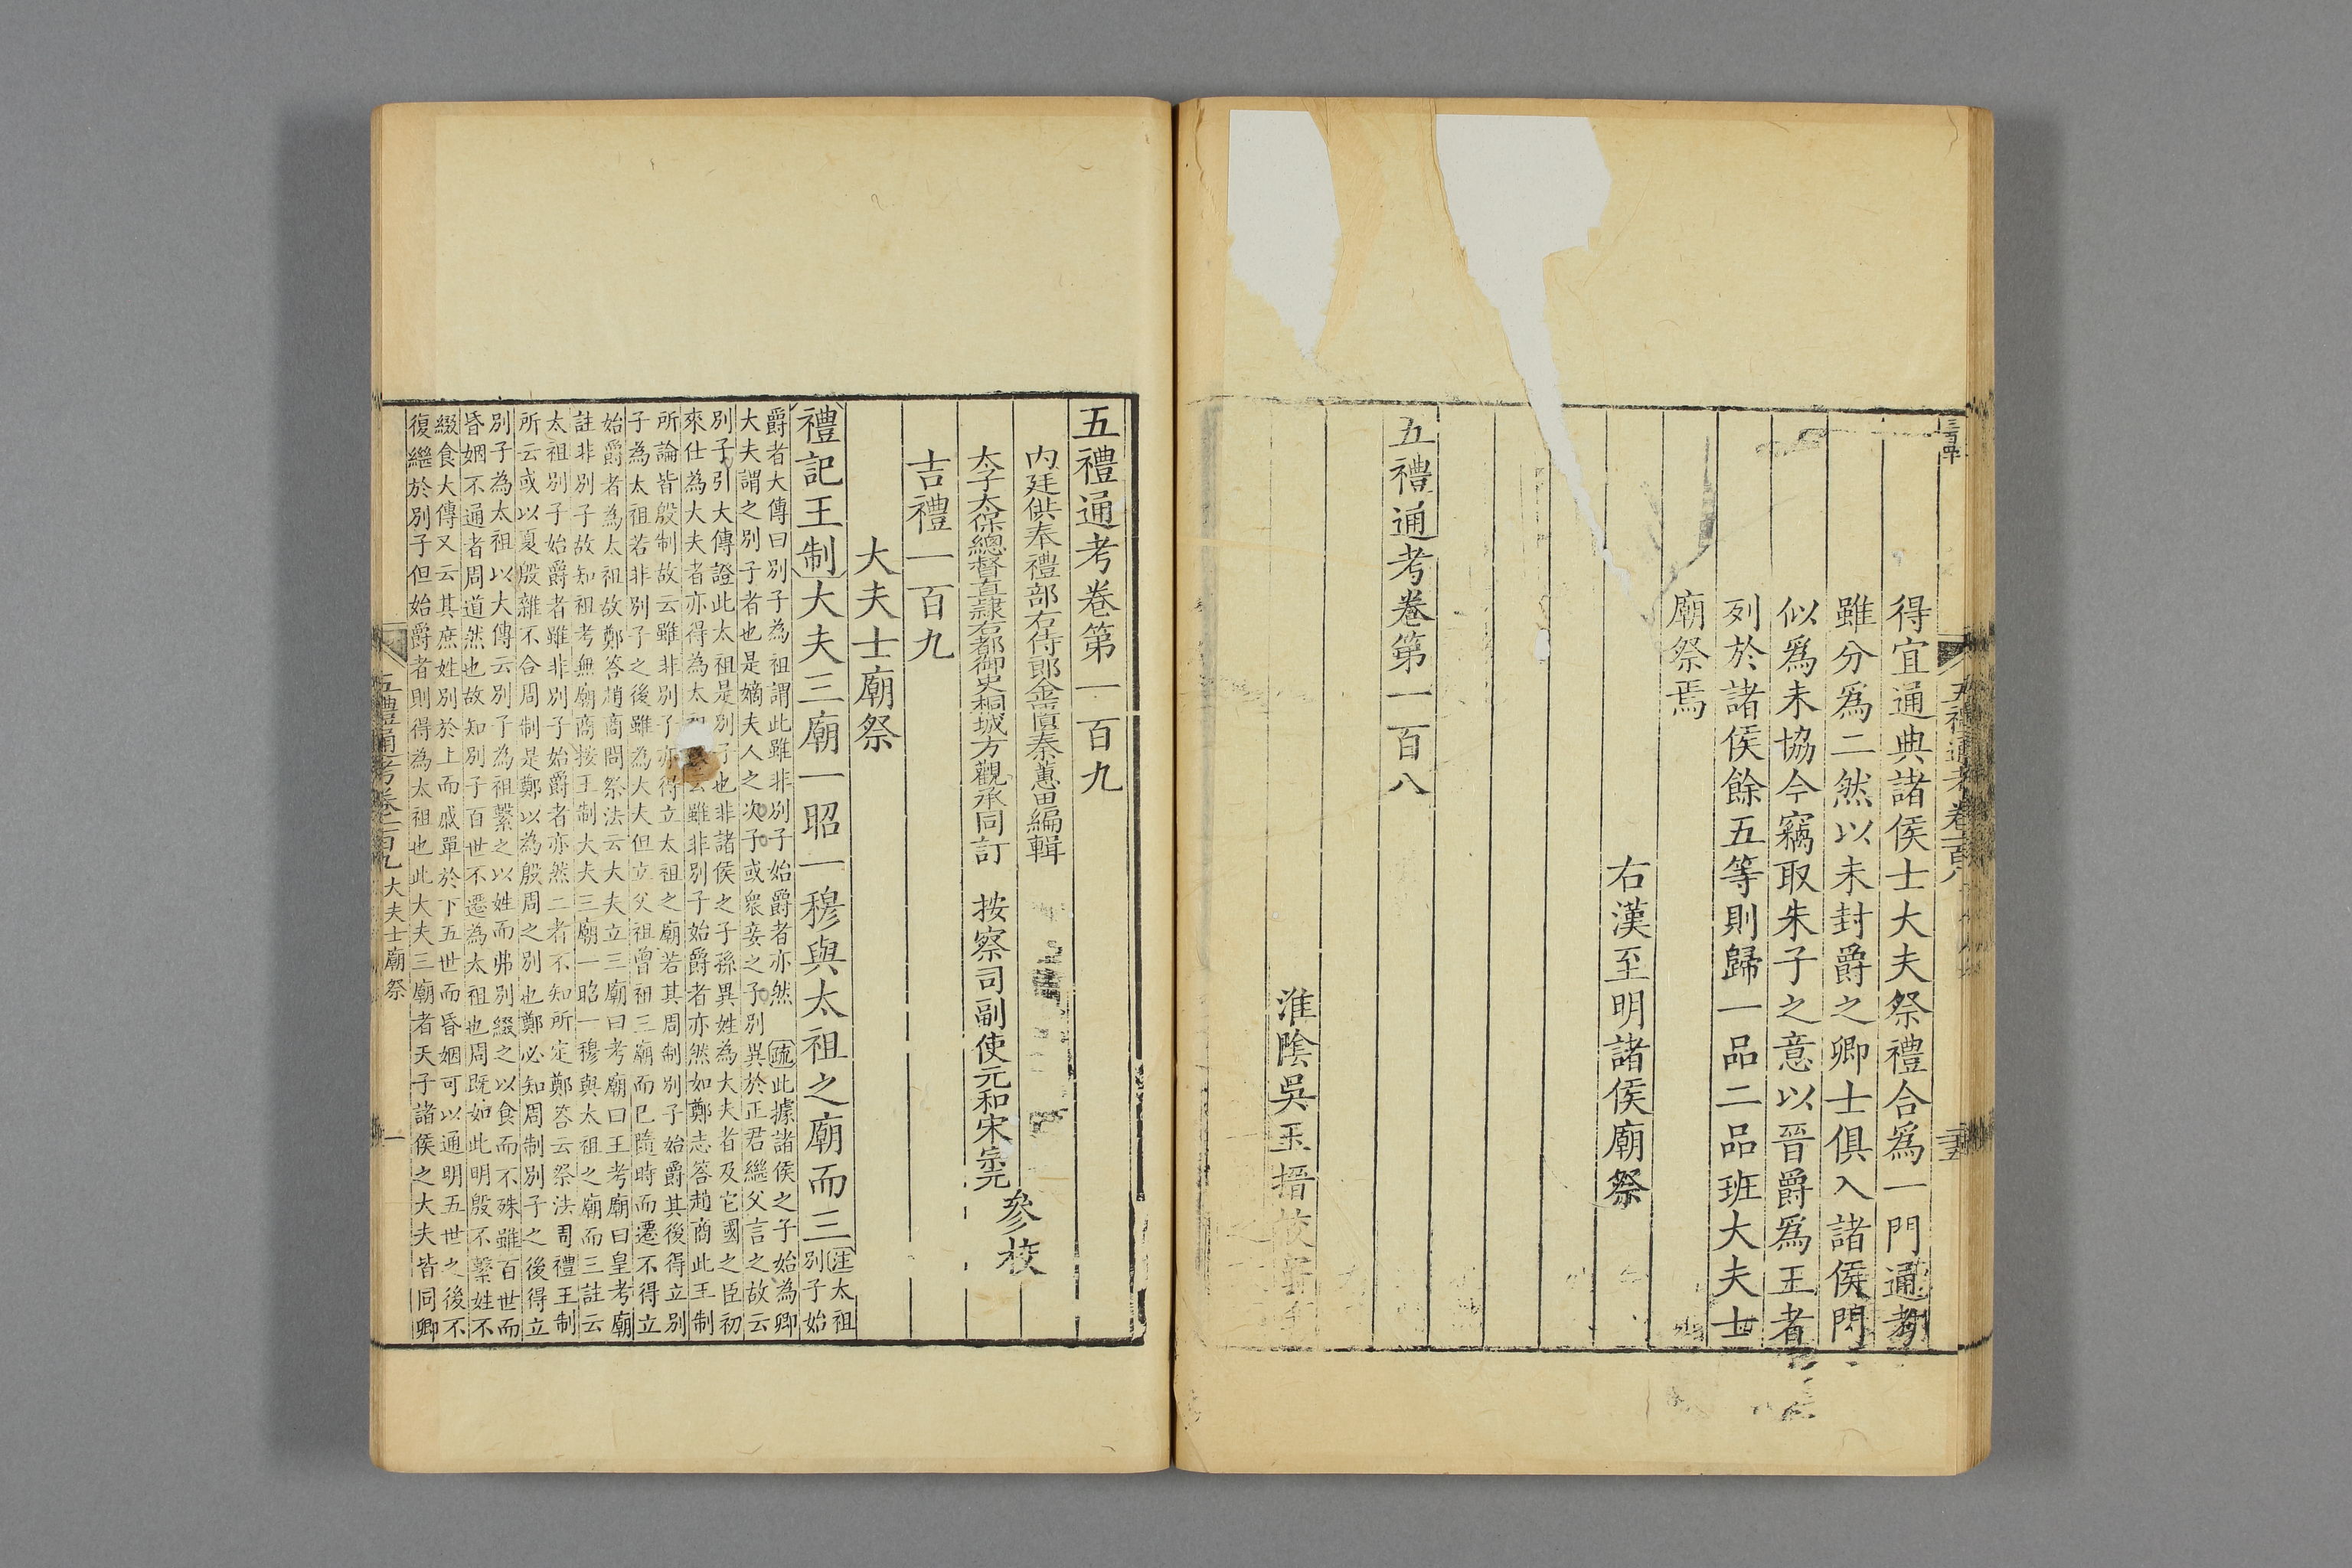 得宜通典諸侯士大夫祭禮合爲一門通考
雖分爲二然以未封爵之卿士俱入諸侯門
似爲未協今竊取朱子之意以晉爵爲王者
列於諸侯餘五等則歸一品二品班大夫士
廟祭焉
右漢至明諸侯廟祭
五禮通考卷第一百八
淮陰吳玉搢校
五禮通考卷第一百九
内廷供奉禮部右侍郎金匱秦蕙田編輯
太子太保總督直隷右都御史桐城方觀承同訂
按察司副使元和宋宗元
參校
吉禮一百九
大夫士廟祭
禮記王制大夫三廟一昭一穆與太祖之廟而三
注太祖
別子始
爵者大傳曰別子為祖謂此雖非別子始爵者亦然 疏此據諸侯之子始為卿
大夫謂之別子者也是嫡夫人之次子或衆妾之子別異於正君繼父言之故云
別子引大傳證此太祖是別子也非諸侯之子孫異姓為大夫者及它國之臣初
來仕為大夫者亦得為太 雖非別子始爵者亦然如鄭志答趙商此王制
所論皆殷制故云雖非別子亦得立太祖之廟若其周制別子始爵其後得立別
子為太祖若非別子之後雖為大夫但立父祖曾祖三廟而已隨時而遷不得立
始爵者為太祖故鄭答趙商問祭法云大夫立三廟曰考廟曰王考廟曰皇考廟
註非別子故知祖考無廟商按王制大夫三廟一昭一穆與太祖之廟而三註云
太祖別子始爵者雖非別子始爵者亦然二者不知所定鄭答云祭法周禮王制
所云或以夏殷雜不合周制是鄭以為殷周之別也鄭必知周制別子之後得立
別子為太祖以大傳云別子為祖繫之以姓而弗別綴之以食而不殊雖百世而
昏姻不通者周道然也故知別子百世不遷為太祖也周既如此明殷不繫姓不
綴食大傳又云其庶姓別於上而戚單於下五世而昏姻可以通明五世之後不
復繼於別子但始爵者則得為太祖也此大夫三廟者天子諸侯之大夫皆同卿
五禮通考卷一百九 大夫士廟祭
一